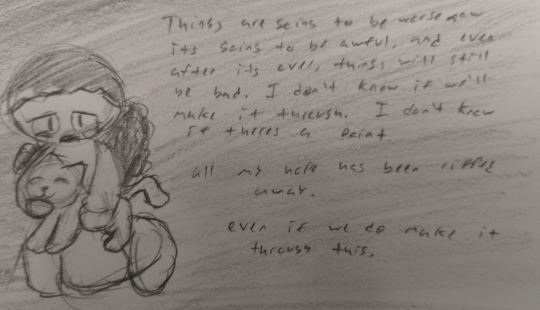 Things are going to be worse now
its going to be awful, and even
after its over, things will still
be bad. I don't know if we'll
make it through. I don't know
if theres a point.
all my hope has been ripped
away.
even if we do make it
through this.